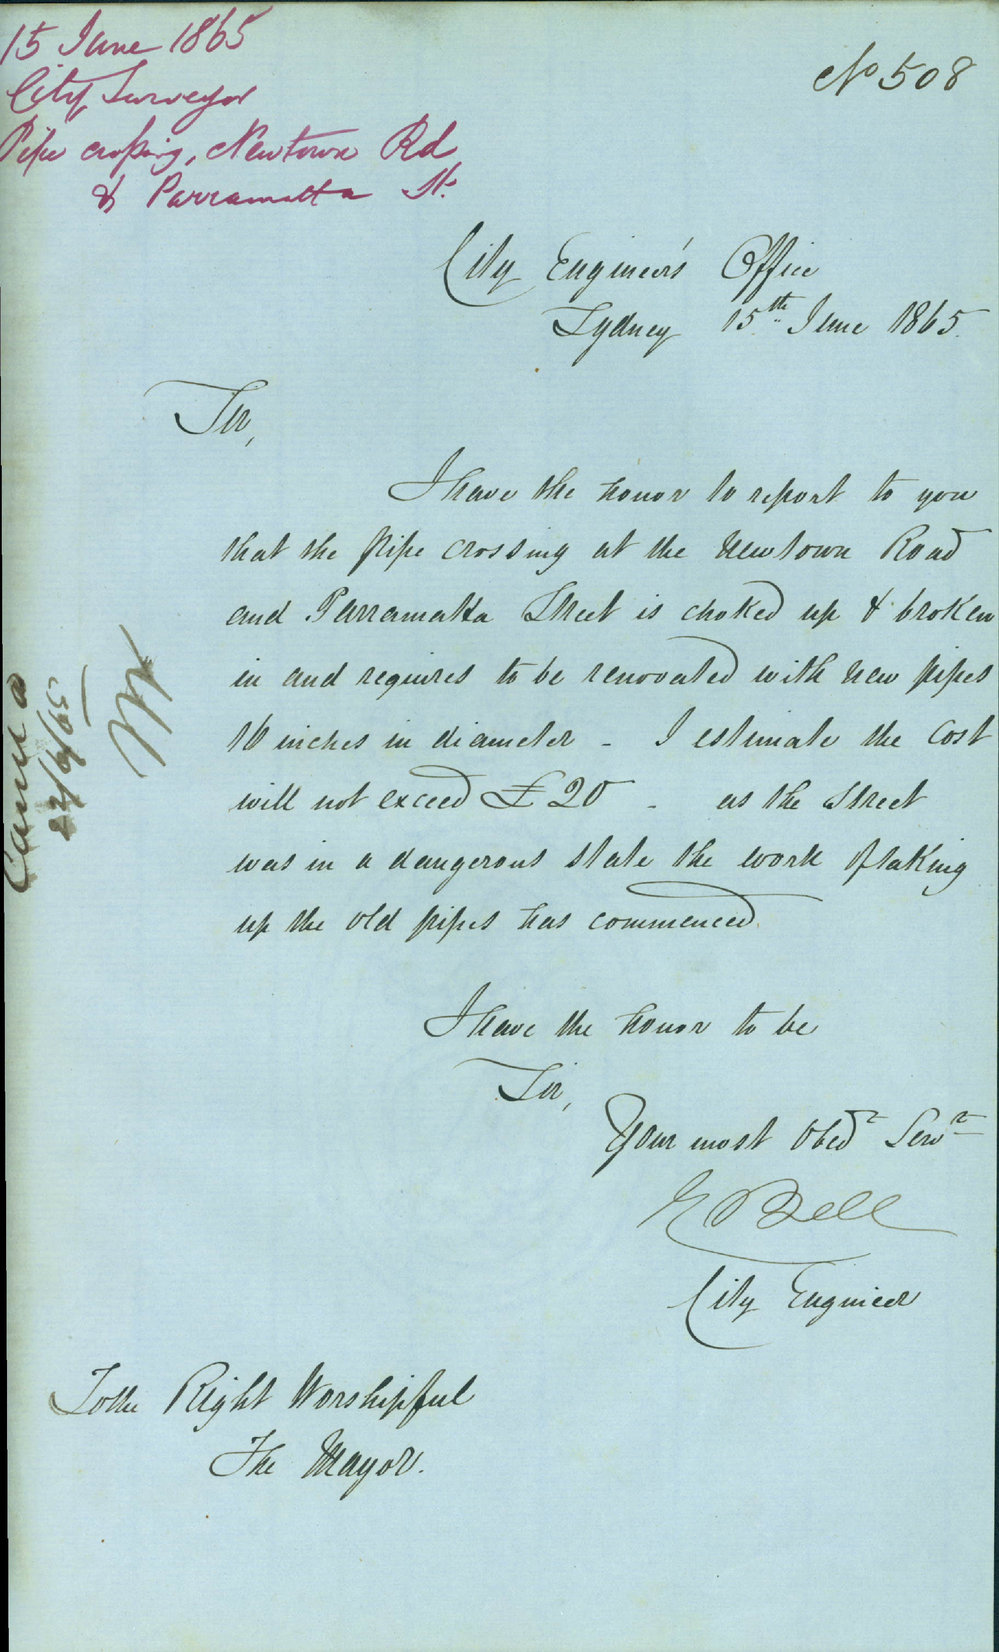 15 June 1865
City Surveyor
Pipe crossing, Newtown Rd
& Parramatta St.
No 508
City Engineer's Office
Sydney 15th June 1865.
Sir,
I have the honor to report to you
that the pipe crossing at the Newtown Road
and Parramatta Street is choked up & broken
in and requires to be renovated with new pipes
16 inches in diameter - I estimate the cost
will not exceed £20 - as the Street
was in a dangerous state the work of taking
up the old pipes has commenced.
I have the honor to be
Sir,
Your most Obedt Servt
E Bell
City Engineer
To the Right Worshipful
The Mayor.
22/6/65